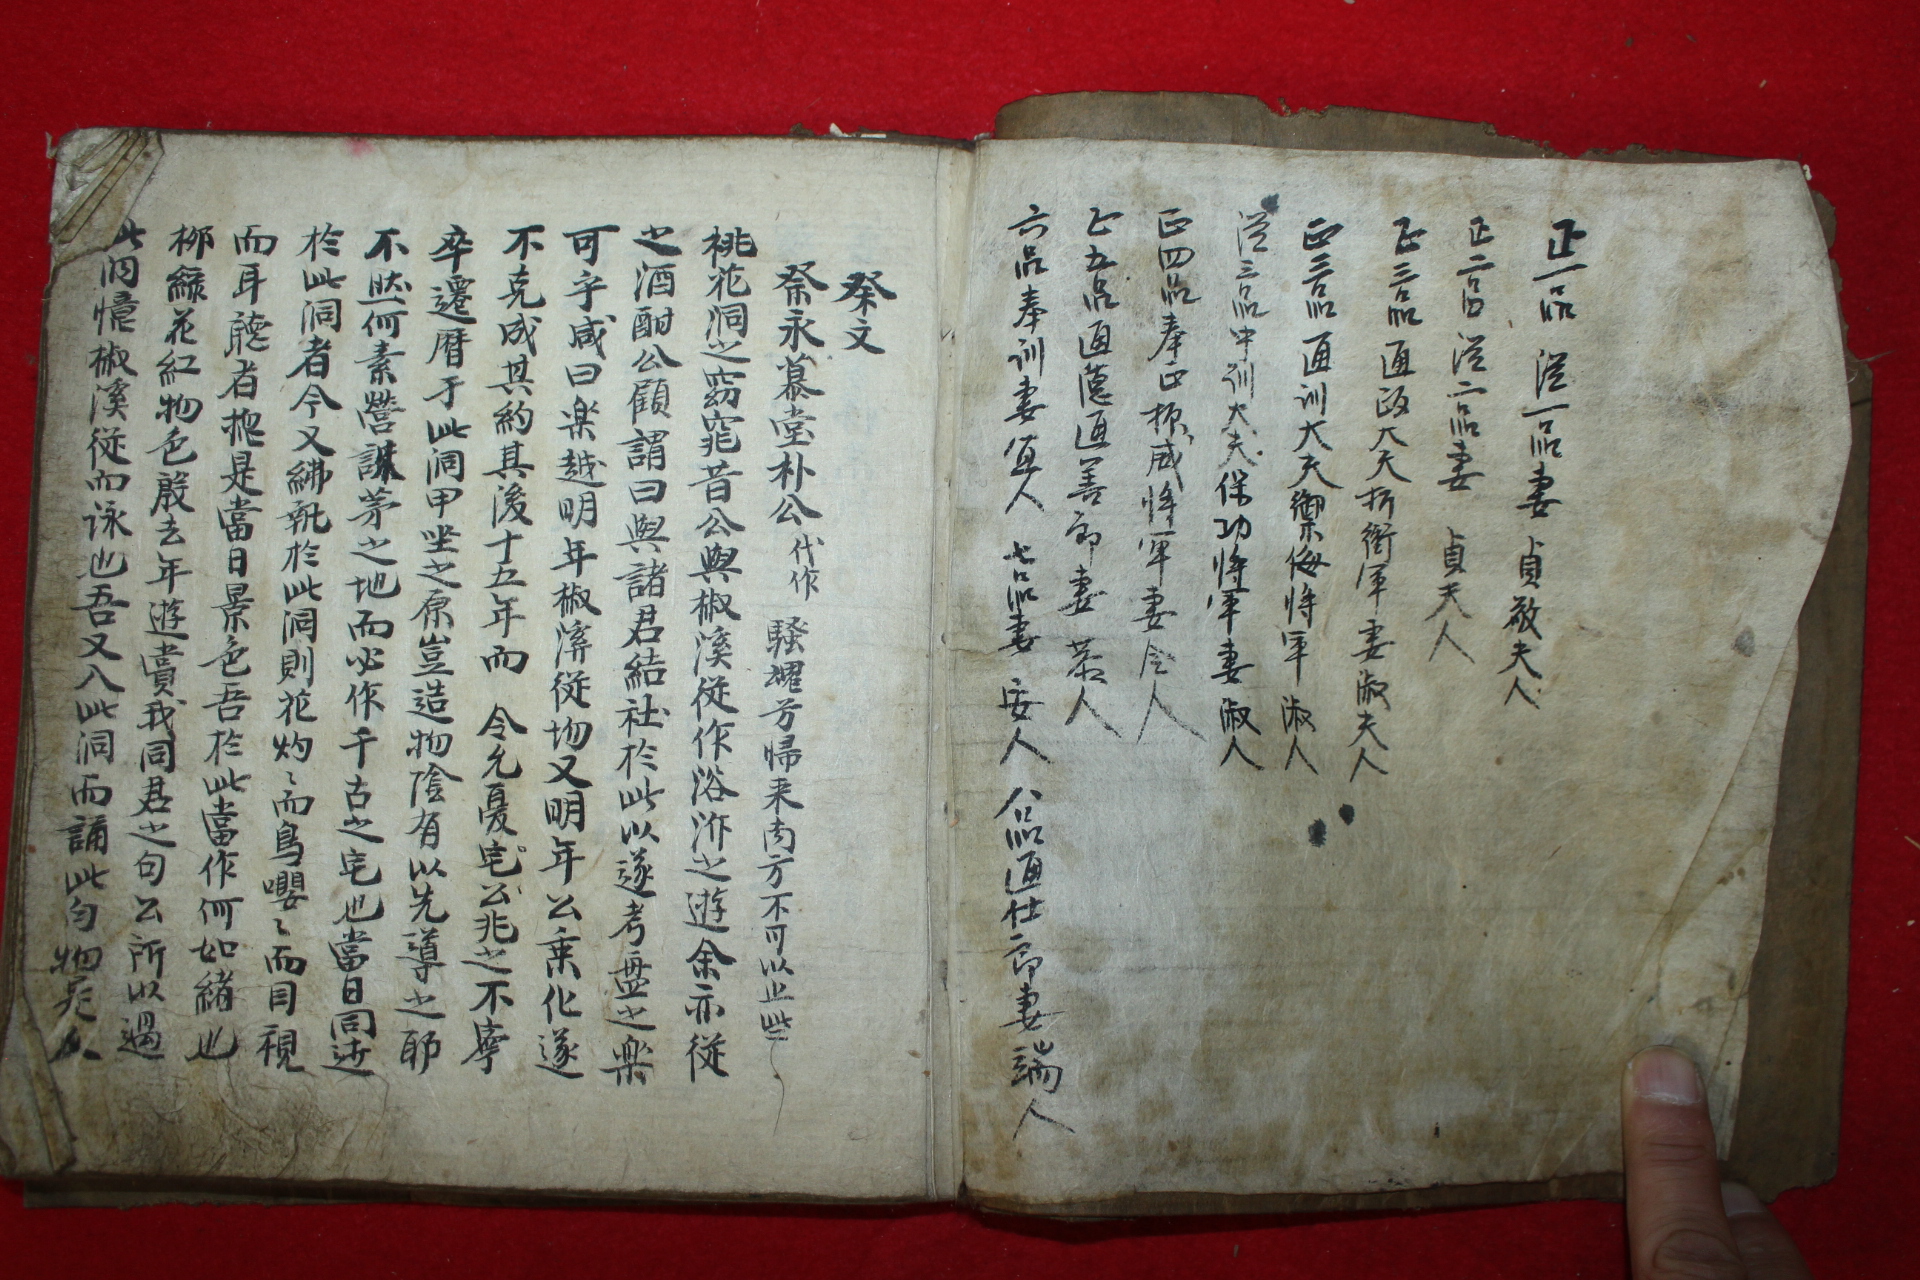 正一品 從一品妻 貞敬夫人
正二品 從二品妻 貞夫人
正三品 通政大夫折衝將軍妻淑夫人
正三品 通訓大夫禦侮將軍 淑人
從三品中訓大夫保功將軍妻 淑人
正四品奉正振威將軍妻令人
正五品通德通善郎妻 恭人
六品奉訓妻宜人 七品妻 安人 八品通仕郎妻 端人
祭文
祭永慕堂朴公 代作 騷耀芳歸来南方不可以止些
桃花洞之窈窕昔公與椒溪從作浴沂之遊余亦從
之酒酣公顧謂曰與諸君結社於此以遂考盤之樂
可乎咸曰樂越明年椒溪從均又明年公乗化遂
不克成其約其後十五年而 令允憂宅公兆之不寧
卒遷厝于此洞甲坐之原豈造物陰有以先導之耶
不然何素營謀茅之地而必作千古之宅也當日同遊
於此洞者今又紼執於此洞則花灼〻而鳥嚶〻而目視
而耳聴者揔是當日景色吾於此當作何如緒也
柳綠花紅物色殷去年遊賞我同君之句公所以過
此洞憶椒溪從而詠也吾又入此洞而誦此句物是人